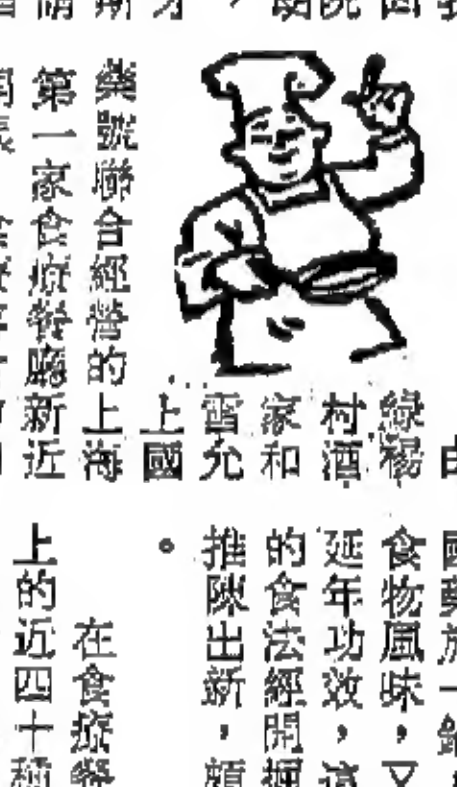 綠楊
村酒
家和
雷允
上國
藥號聯合經營的上海
第一家食療餐廳新近
食物風味，又
延年功效，這
的食法經開掘
推陳出新，頗
。
在食療餐
上的近四十種